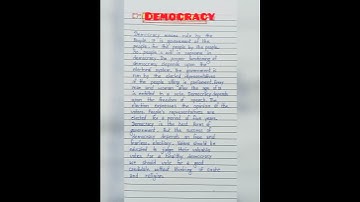 DEMOCRACY
"Democracy means rule by the
People. It is government of the
people, for the people by the people.
for people's will is supreme in
democracy. The proper functioning of
democracy depends upon the
electoral system. The government is
run by the elected representatives
of the people sitting in parliament. Every
man and women after the age of 18
is entitled to a vote. Democracy depends
upon the freedom of speech. The
election expresses the opinion of the
voters. People's representatives are
elected for a period of five years.
Democracy is the best form of
government. But the success of
Democracy depends on free and
fearless elections. Voters should be
educated to judge their valuable
votes. For a healthy democracy
we should vote for a good
candidate without thinking of caste
and religion.